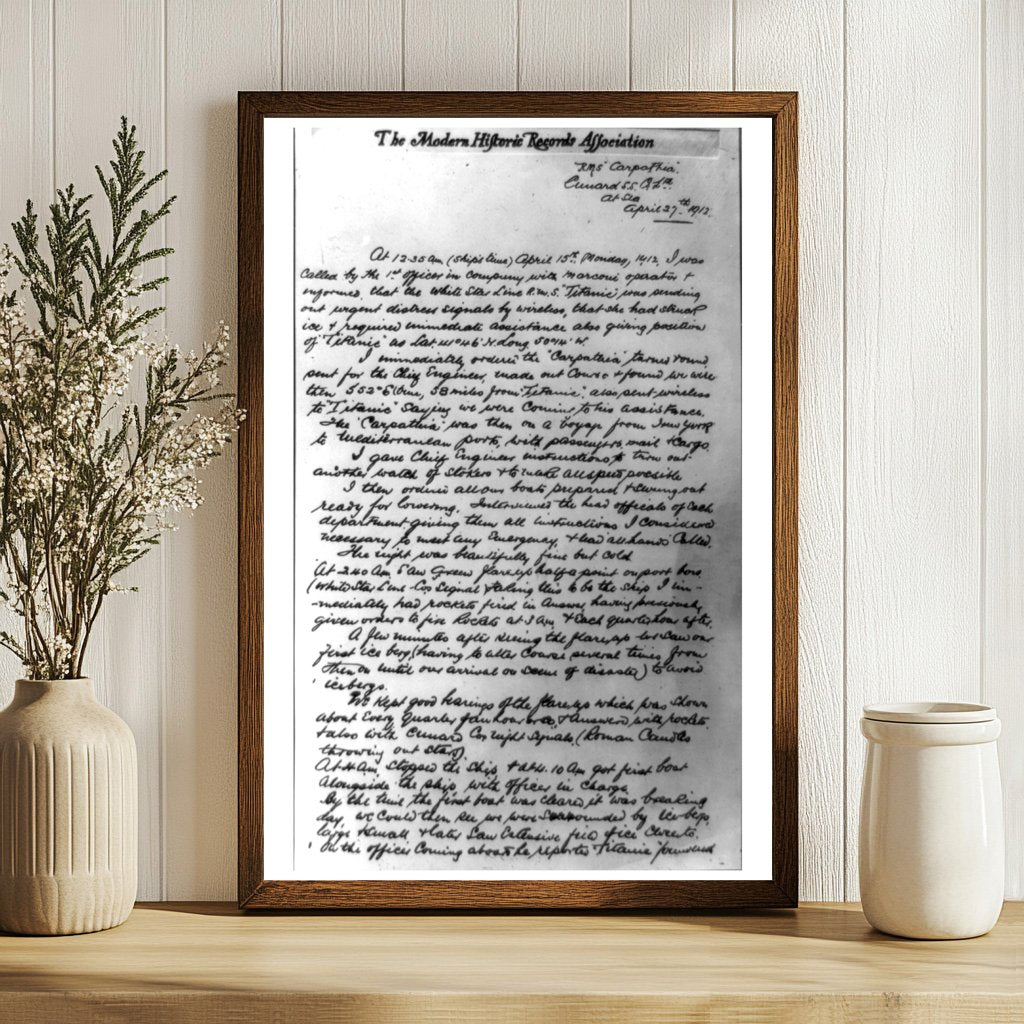 The Modern Historic Records Association
"R.M.S" Carpathia".
Cunard S.S. Co Ltd.
At Sea
April 27th 1912.
At 12.35 am (ship's time) April 15th, Monday, 1912, I was
called by the 1st officer in company with marconi operator +
informed, that the White Star Line R.M.S. "Titanic" was sending
out urgent distress signals by wireless, that she had struck
ice + required immediate assistance also giving position
of "Titanic" as Lat. 41°46' N. Long. 50°14' W.
I immediately ordered the "Carpathia" turned round,
sent for the Chief Engineer, made out Course + found we were
then S 52° E (true) 58 miles from "Titanic", also sent wireless
to "Titanic" saying we were coming to his assistance.
The "Carpathia" was then on a voyage from New York
to Mediterranean ports, with passengers, mail + cargo.
I gave Chief Engineer instructions to turn out
another watch of stokers + to make all speed possible
I then ordered all our boats prepared + swung out
ready for lowering. Interviewed the head officials of each
department giving them all instructions I considered
necessary to meet any Emergency, + had all hands called.
The night was beautifully fine but cold
At 2.40 Am saw Green flare up half a point on port bow
(White Star Line Cos Signal) + taking this to be the ship I im-
-mediately had rockets fired in answer, having previously
given orders to fire Rockets at 3 Am, + Each quarter hour after.
A few minutes after seeing the flare up we saw our
first ice berg, (having to alter Course several times from
then on until our arrival on scene of disaster) to avoid
icebergs.
We kept good bearings of the flare ups which was shown
about Every quarter of an hour + answered with rockets
+ also with Cunard Cos night Signals, (Roman Candles
throwing out stars).
At 4 Am, stopped the ship, + at 4.10 Am got first boat
alongside the ship with officer in charge
By the time the first boat was cleared it was breaking
day, we could then see we were surrounded by ice bergs,
large + small + later saw Extensive field of ice
On the officer coming aboard he reported "Titanic" foundered